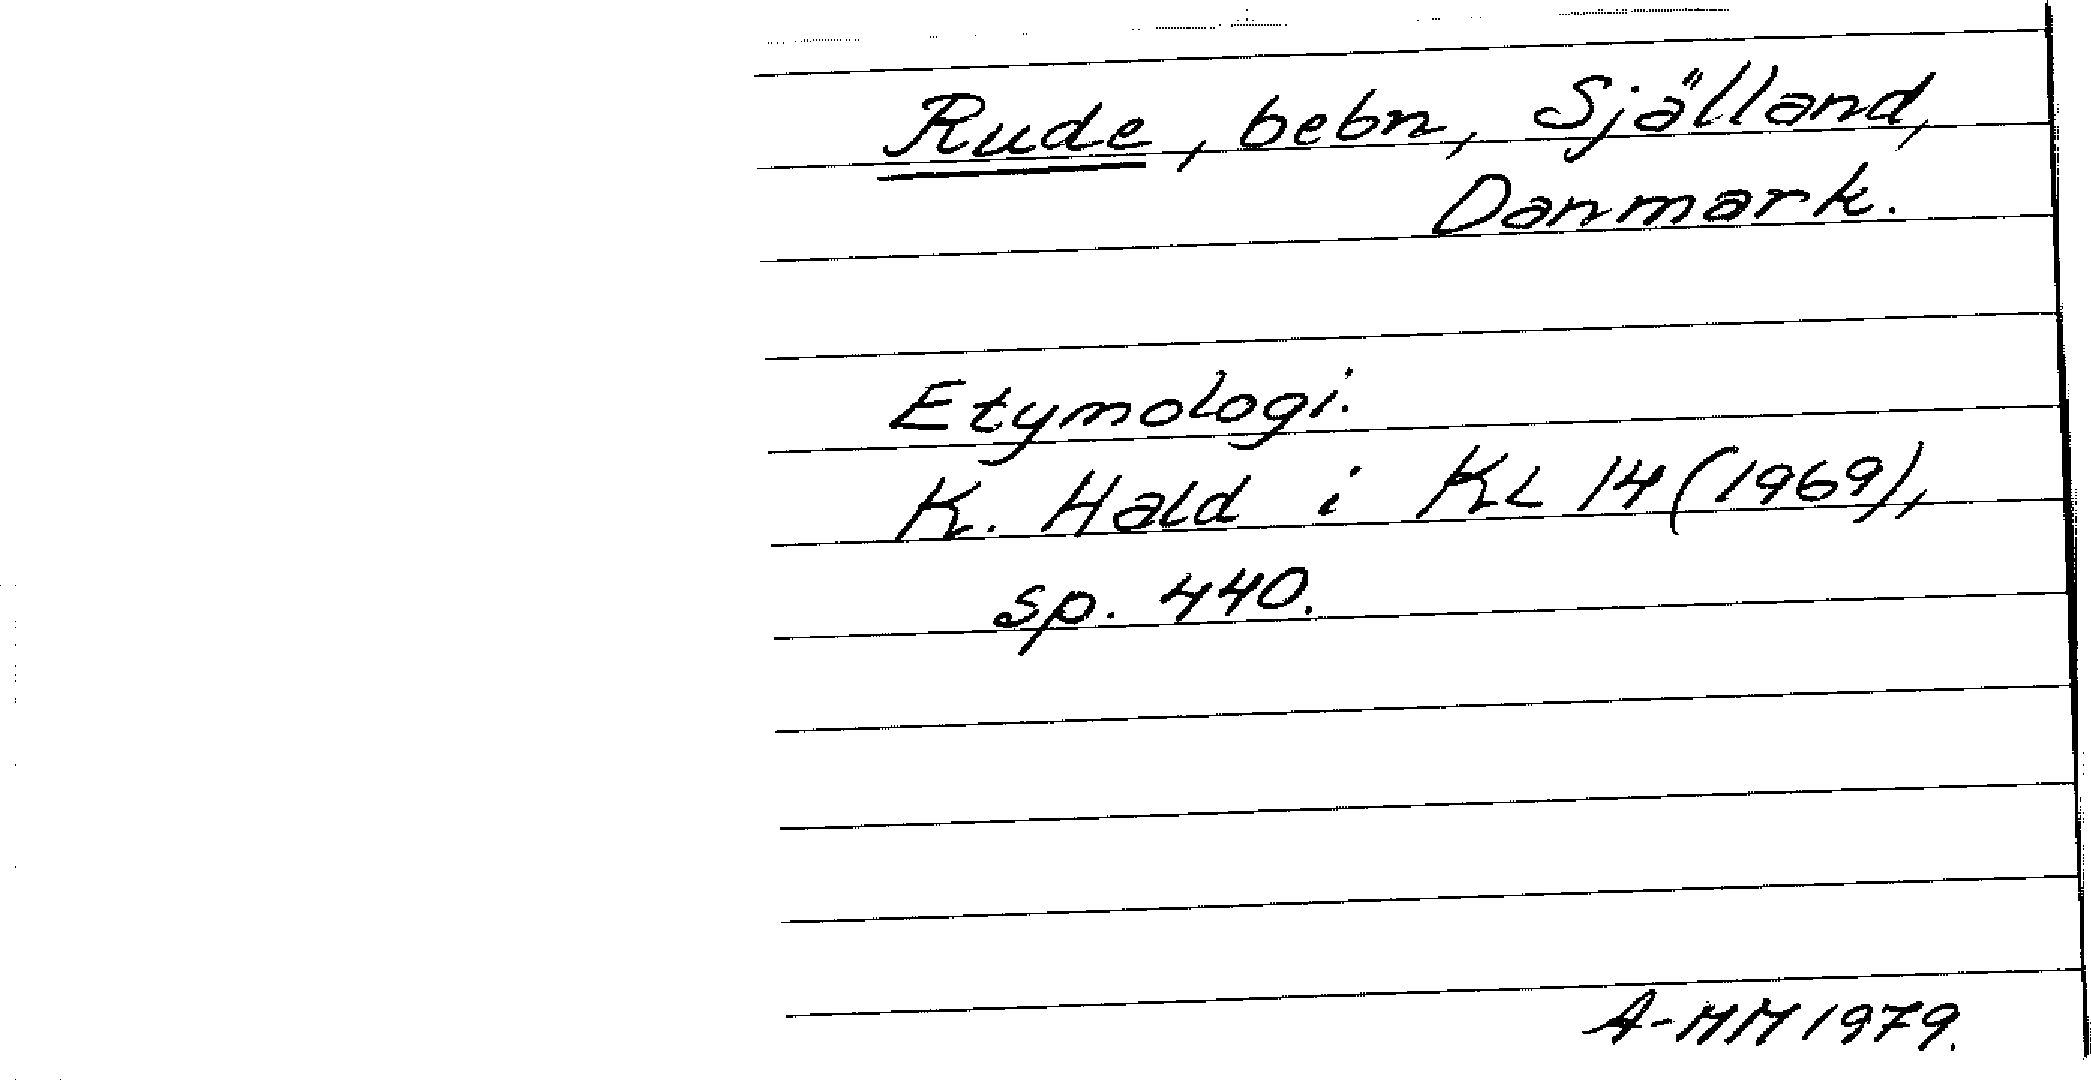 Rude, bebn, Själland,
Danmark.
Etymologi.
K. Hald i KL 14 (1969),
sp. 440.
A-MM 1979.